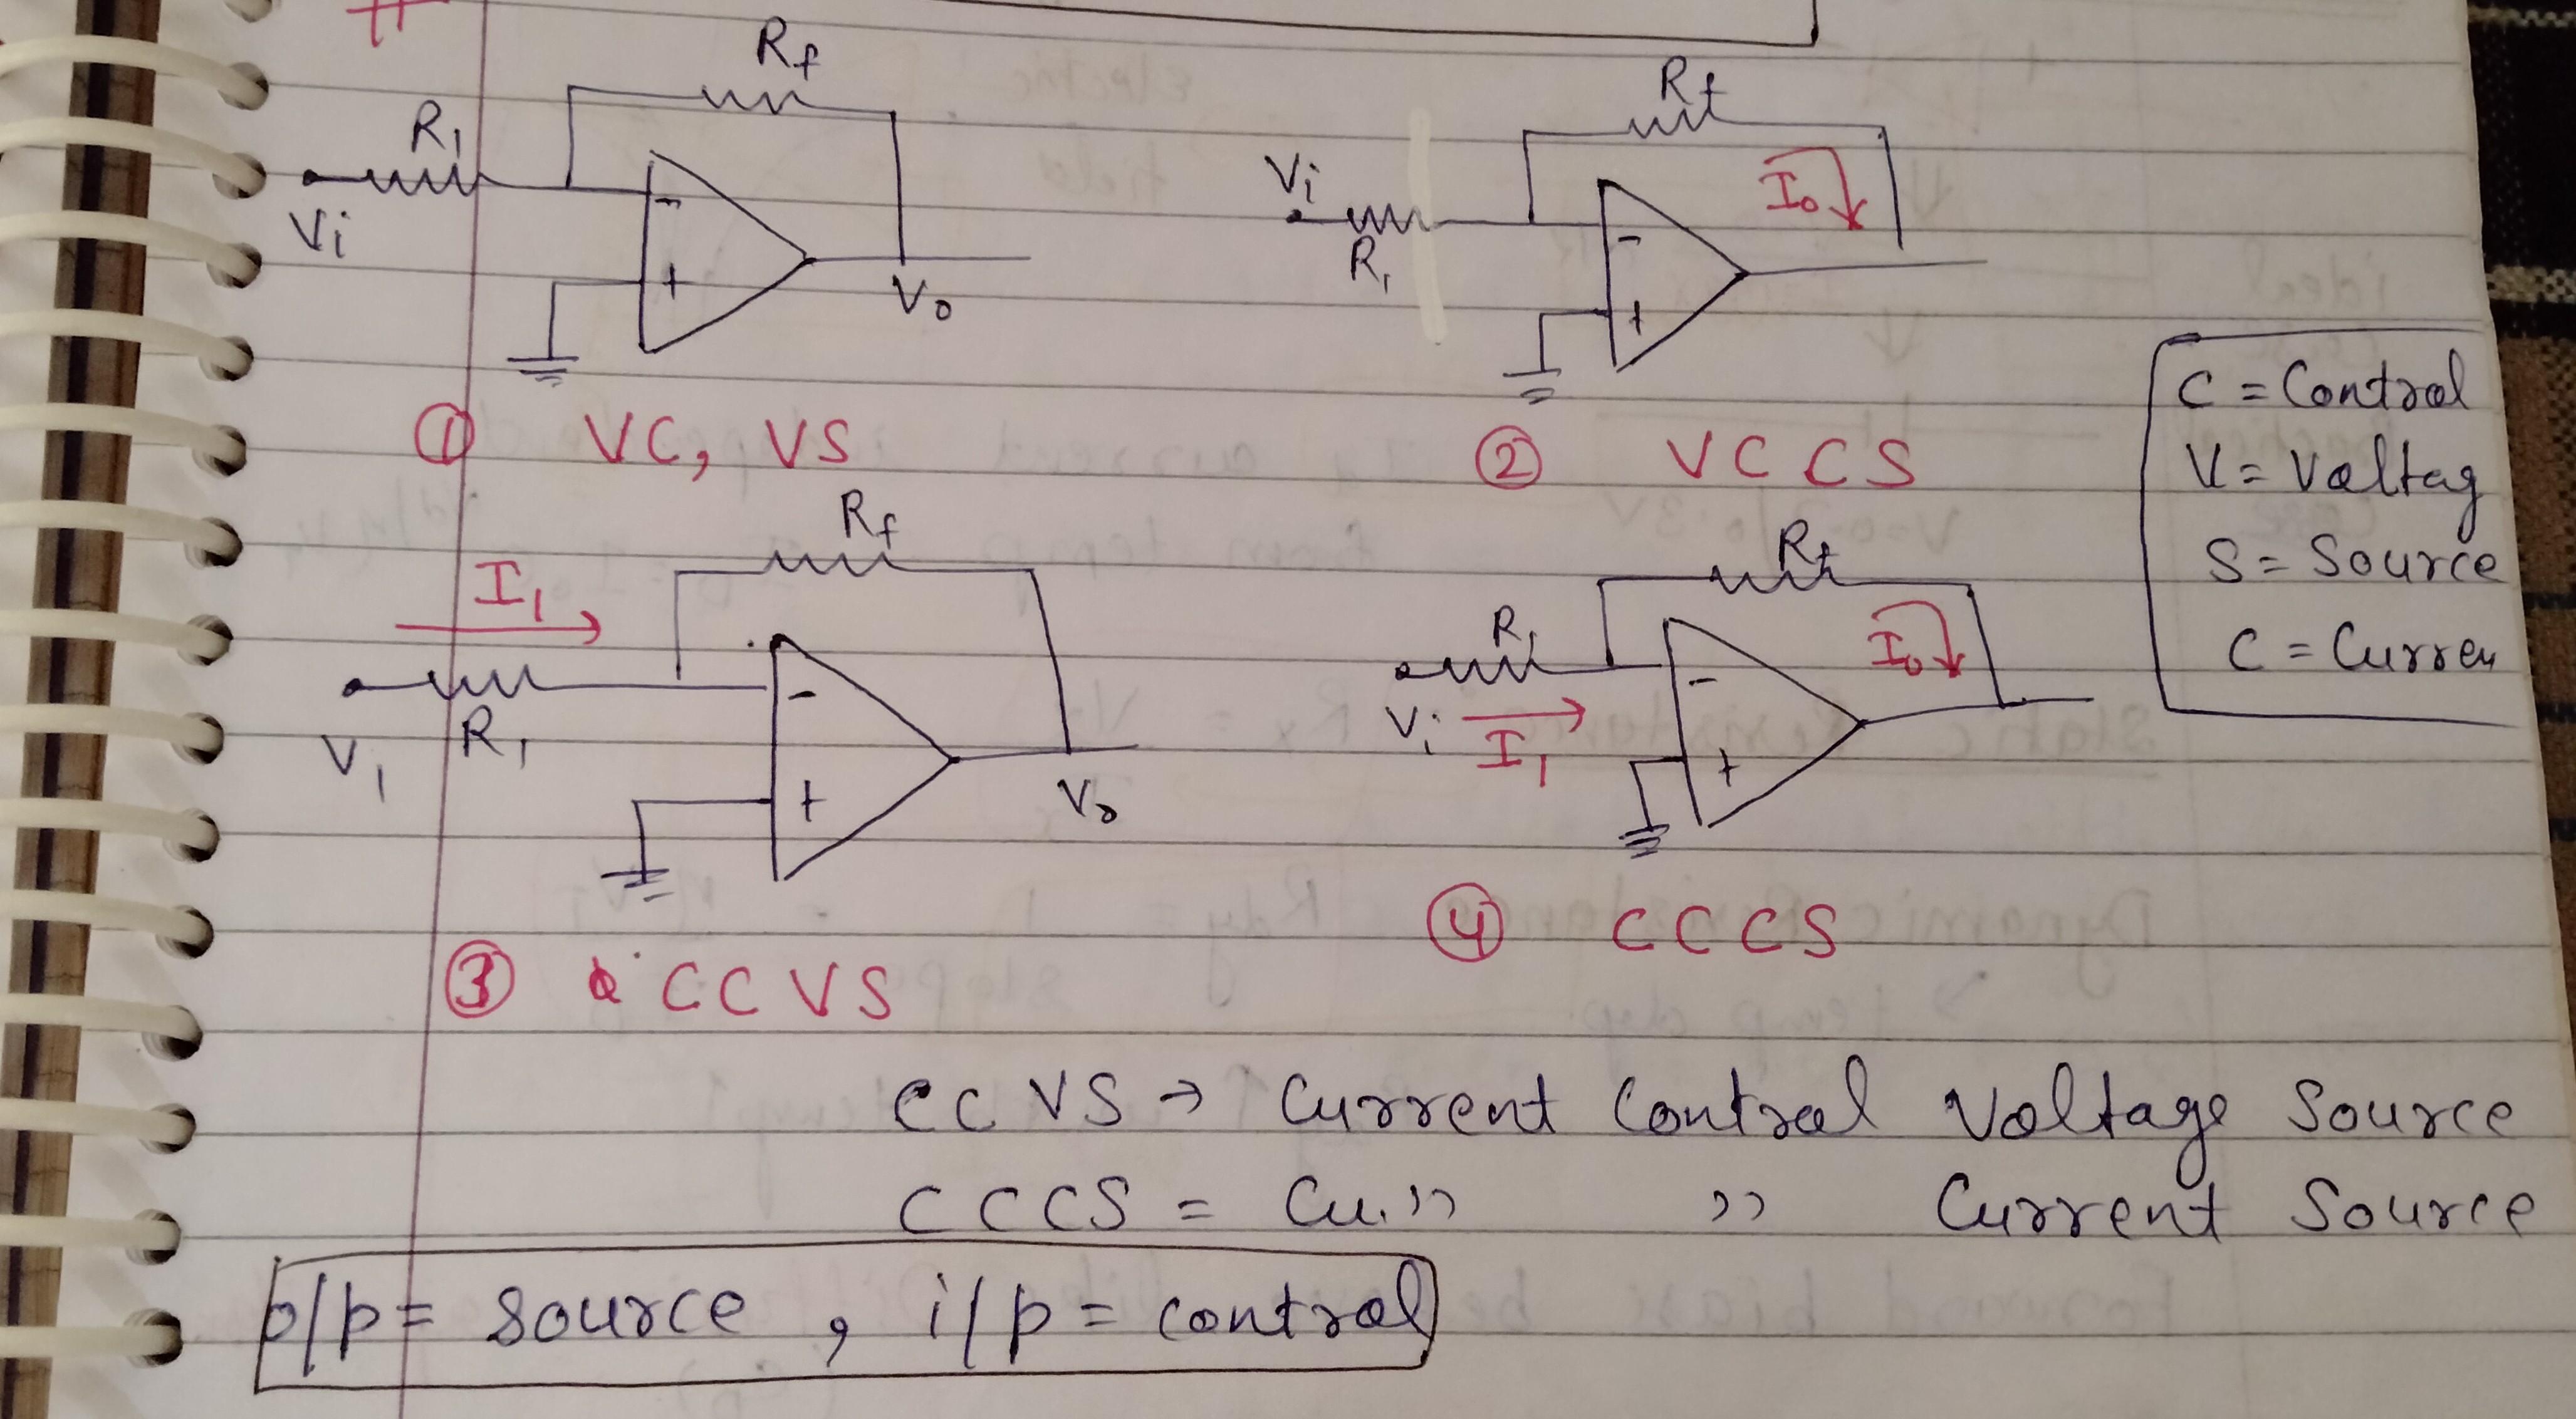 Rf
R1
Vi
-
+
Vo
① VC, VS
Rf
Vi
R1
Io
-
+
② VCCS
C = Control
V = Voltag
S = Source
C = Curren
Rf
I1
V1
R1
-
+
Vo
③ CCVS
Rf
R1
Vi
I1
Io
-
+
④ CCCS
CCVS → Current Control Voltage Source
CCCS = Cu. ,, ,, Current Source
o/p = Source , i/p = control